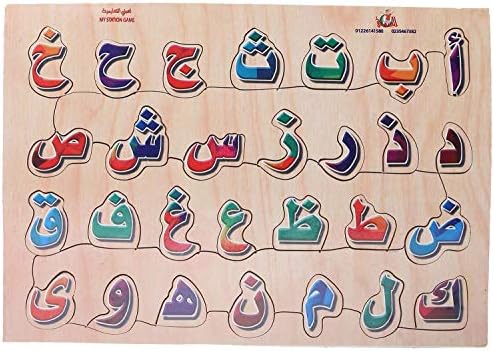 لعبتي التعليمية
MY STATION GAME
01226141588 0235467862
أ ب ت ث ج ح خ
د ذ ر ز س ش ص
ض ط ظ ع غ ف ق
ك ل م ن ه و ى